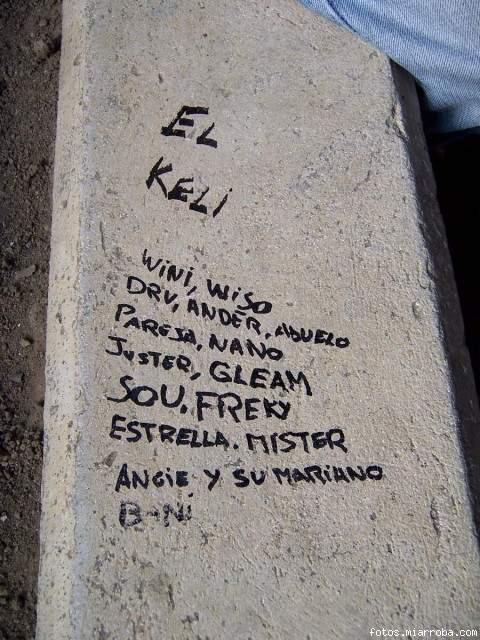 EL
KELI
WINI, WISO
DRV, ANDER, ABUELO
PAREJA, NANO
JUSTER, GLEAM
SOU, FREKY
ESTRELLA. MISTER
ANGIE Y SU MARIANO
B-Ni
fotos.miarroba.com